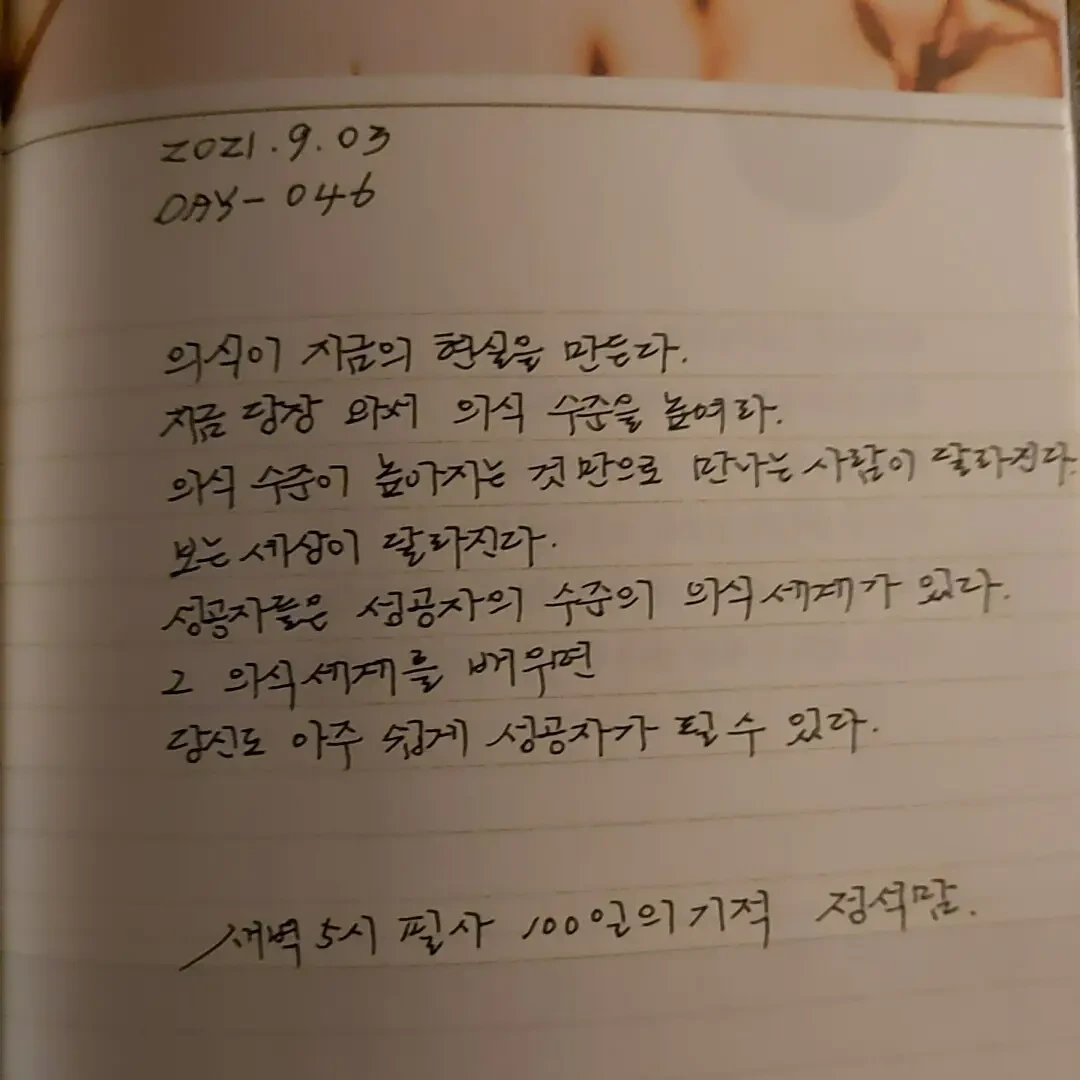 2021.9.03
DAY- 046
의식이 지금의 현실을 만든다.
지금 당장 와서 의식 수준을 높여라.
의식 수준이 높아지는 것만으로 만나는 사람이 달라진다.
보는 세상이 달라진다.
성공자들은 성공자의 수준의 의식세계가 있다.
그 의식세계를 배우면
당신도 아주 쉽게 성공자가 될 수 있다.
새벽 5시 필사 100일의 기적 정석맘.